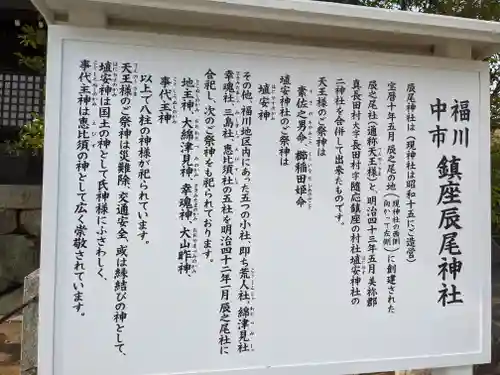 福川
中市
鎮座辰尾神社
辰尾神社は(現神社は昭和十五にご造営)
宝暦十年五月辰之尾の地(現神社の西側(向かって左側))に創建された
辰之尾社(通称天王様)と、明治四十三年五月美祢郡
真長田村大字長田村字随応鎮座の村社埴安神社の
二神社を合併して出来たものです。
天王様のご祭神は
素佐之男命、御稲田姫命
埴安神社のご祭神は
埴安神
その他、福川地区内にあった五つの小社、即ち荒人社、綿津見社、
幸魂社、三島社、恵比須社の五社を明治四十二年一月辰之尾社に
合祀し、次のご祭神をも祀られております。
地主神、大綿津見神、幸魂神、大山咋神、
事代主神
以上で八柱の神様が祀られています。
天王様のご祭神は災難除、交通安全、或は縁結びの神として、
埴安神は国土の神として氏神様にふさわしく、
事代主神は恵比須の神として広く崇敬されています。